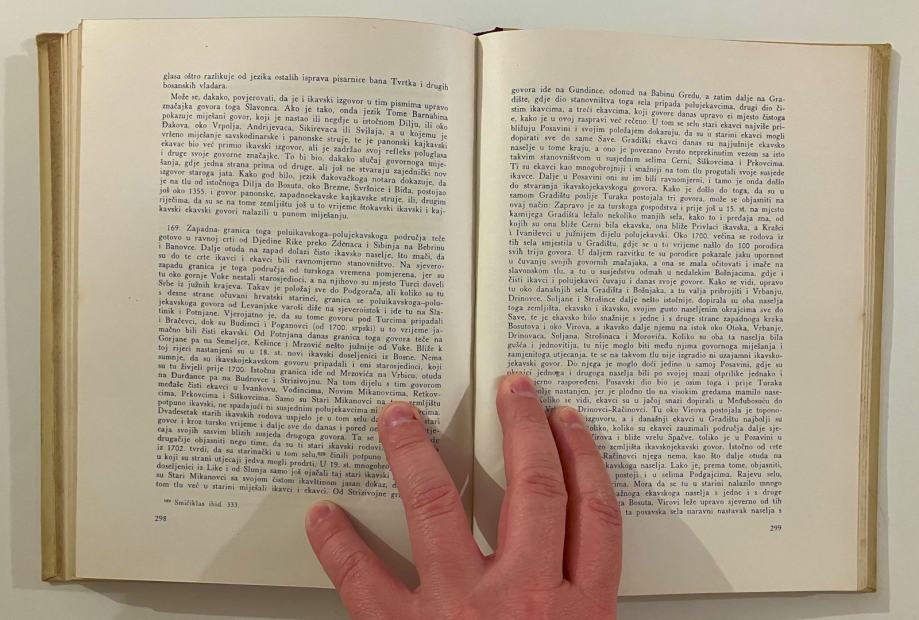 glasa oštro razlikuje od jezika ostalih isprava pisarnice bana Tvrtka i drugih
bosanskih vladara.
Može se, dakako, povjerovati, da je i ikavski izgovor u tim pismima upravo
značajka govora toga Slavonca. Ako je tako, onda jezik Tome Barnabina
pokazuje miješani govor, koji je nastao ili negdje u istočnom Dilju, ili oko
Đakova, oko Vrpolja, Andrijevaca, Sikirevaca ili Svilaja, a u kojemu je
vršeno miješanje savskodinarske i panonske struje, te je panonski kajkavski
ekavac bio već primio ikavski izgovor, ali je zadržao svoj refleks poluglasa
i druge svoje govorne značajke. To bi bio, dakako slučaj govornoga mije-
šanja, gdje jedna strana prima od druge, ali još ne stvaraju zajednički nov
izgovor staroga jata. Kako god bilo, jezik đakovačkoga notara dokazuje, da
je na tlu od istočnoga Dilja do Bosuta, oko Brezne, Svršnice i Biđa, postojao
još oko 1355. i govor panonske, zapadnoekavske kajkavske struje, ili, drugim
riječima, da su se na tome zemljištu još u to vrijeme štokavski ikavski i kaj-
kavski ekavski govori nalazili u punom miješanju.
169. Zapadna granica toga poluikavskoga-polujekavskoga područja teče
gotovo u ravnoj crti od Djedine Rike preko Zdenaca i Sibinja na Bebrinu
i Banovce. Dalje otuda na zapad dolazi čisto ikavsko naselje. Što znači, da
su do te crte ikavci i ekavci bili ravnomjerni stanovništvo. Na sjevero-
zapadu granica je toga područja od turskoga vremena pomjerena, jer su
tu oko gornje Vuke nestali starosjedioci, a na njihovo su mjesto Turci doveli
Srbe iz južnih krajeva. Takav je položaj sve do Podgorača, ali koliko su tu
s desne strane očuvani hrvatski starinci, granica se poluikavskoga-polu-
jekavskoga govora od Levanjske varoši diže na sjeveroistok i ide tu na Sla-
tinik i Potnjane. Vjerojatno je, da su tome govoru pod Turcima pripadali
i Bračevci, dok su Budimci i Poganovci (od 1700. srpski) u to vrijeme ja-
mačno bili čisti ekavci. Od Potnjana danas granica toga govora teče na
Gorjane pa na Semeljce, Kešince i Mrzović nešto južnije od Vuke. Bliže k
toj rijeci nastanjeni su u 18. st. novi ikavski doseljenici iz Bosne. Nema
sumnje, da su ikavskojekavskom govoru pripadali i oni starosjedioci, koji
su tu živjeli prije 1700. Istočna granica ide od Mrzovića na Vrbicu, otuda
na Đurđance pa na Budrovce i Strizivojnu. Na tom dijelu s tim govorom
međaše čisti ekavci u Ivankovu, Vođincima, Novim Mikanovcima, Retkov-
cima, Prkovcima i Šiškovcima. Samo su Stari Mikanovci na zemljištu
potpuno ikavski, ne spadajući ni susjednim polujekavcima ni
Dvadesetak starih ikavskih rodova uspjelo je u tom selu
govor i kroz tursko vrijeme i dalje sve do danas i pored
caja svojih sasvim blizih susjeda drugoga govora. Ta se
drugačije objasniti nego time, da su ti stari ikavski rodovi
iz 1702. tvrdi, da su starinački u tom selu,⁶⁸⁹ činili potpuno
u koji su strani utjecaji jedva mogli prodrti. U 19. st. mnogobro
doseljenici iz Like i od Slunja samo još ojačali taj stari ikavski
su Stari Mikanovci sa svojom čistom ikavštinom jasan dokaz, d
tom tlu već u starini miješali ikavci i ekavci. Od Strizivojne gr
⁶⁸⁹ Smičiklas ibid. 333.
298
govora ide na Gundince, odonud na Babinu Gredu, a zatim dalje na Gra-
dište, gdje dio stanovništva toga sela pripada polujekavcima, drugi dio či-
stim ikavcima, a treći ekavcima, koji govore danas upravo ei mjesto čistoga
e, kako je u ovoj raspravi već rečeno. U tom se selu stari ekavci najviše pri-
bližuju Posavini i svojim položajem dokazuju, da su u starini ekavci mogli
dopirati sve do same Save. Gradiški ekavci danas su najjužnije ekavsko
naselje u tome kraju, a ono je povezano čvrsto neprekinutim vezom sa isto
takvim stanovništvom u susjednim selima Cerni, Šiškovcima i Prkovcima.
Ti su ekavci kao mnogobrojniji i snažniji na tom tlu progutali svoje susjede
ikavce. Dalje u Posavini oni su im bili ravnomjerni, i tamo je onda došlo
do stvaranja ikavskojekavskoga govora. Kako je došlo do toga, da su u
samom Gradištu poslije Turaka postojala tri govora, može se objasniti na
ovaj način: Zapravo je za turskoga gospodstva i prije još u 15. st. na mjestu
kasnijega Gradišta ležalo nekoliko manjih sela, kako to i predaja zna, od
kojih su ona bliže Cerni bila ekavska, ona bliže Privlaci ikavska, a Krašci
i Ivaniševci u južnijem dijelu polujekavski. Oko 1700. većina se rodova iz
tih sela smjestila u Gradištu, gdje se u to vrijeme našlo do 100 porodica
svih triju govora. U daljem razvitku te su porodice pokazale jaku upornost
u čuvanju svojih govornih značajaka, a ona se mala očitovati i inače na
slavonskom tlu, a tu u susjedstvu odmah u nedalekim Bošnjacima, gdje i
čisti ikavci i polujekavci čuvaju i danas svoje govore. Kako se vidi, upravo
tu oko današnjih sela Gradišta i Bošnjaka, a tu valja pribrojiti i Vrbanju,
Drinovce, Soljane i Strošince dalje nešto istočnije, dopirala su oba naselja
toga zemljišta, ekavsko i ikavsko, svojim gusto naseljenim okrajcima sve do
Save, te je ekavsko bilo snažnije s jedne i s druge strane zapadnoga krzka
Bosutova i oko Virova, a ikavsko dalje njemu na istok oko Otoka, Vrbanje,
Drinovaca, Soljana, Strošinaca i Morovića. Koliko su oba ta naselja bila
gušća i jednovitija, tu nije moglo biti među njima govornoga miješanja i
zamjenitoga utjecanja, te se na takvom tlu nije izgradio ni uzajamni ikavsko-
jekavski govor. Do njega je moglo doći jedino u samoj Posavini, gdje su
okrajci jednoga i drugoga naselja bili po svojoj snazi otprilike jednako i
raspoređeni. Posavski dio bio je osim toga i prije Turaka
nastanjen, jer je plodno tlo na visokim gredama mamilo nase-
koliko se vidi, ekavci su u jačoj snazi dopirali u Međubosuću do
Drinovci-Račinovci. Tu oko Virova postojala je topono-
izgovoru, a i današnji ekavci u Gradištu najbolji su
koliko su ekavci zauzimali područja dalje sje-
Virova i bliže vrelu Spačve, toliko je u Posavini u
zemljišta ikavskojekavski govor. Istočno od crte
Račinovci njega nema, kao što dalje otuda na
kavskoga naselja. Lako je, prema tome, objasniti,
postoji i u selima Podgajcima, Rajevu selu,
Mora da se tu u starini nalazilo mnogo
ažnoga ekavskoga naselja s jedne i s druge
Bosuta. Virovi leže upravo sjeverno od tih
ta posavska sela naravni nastavak naselja s
299